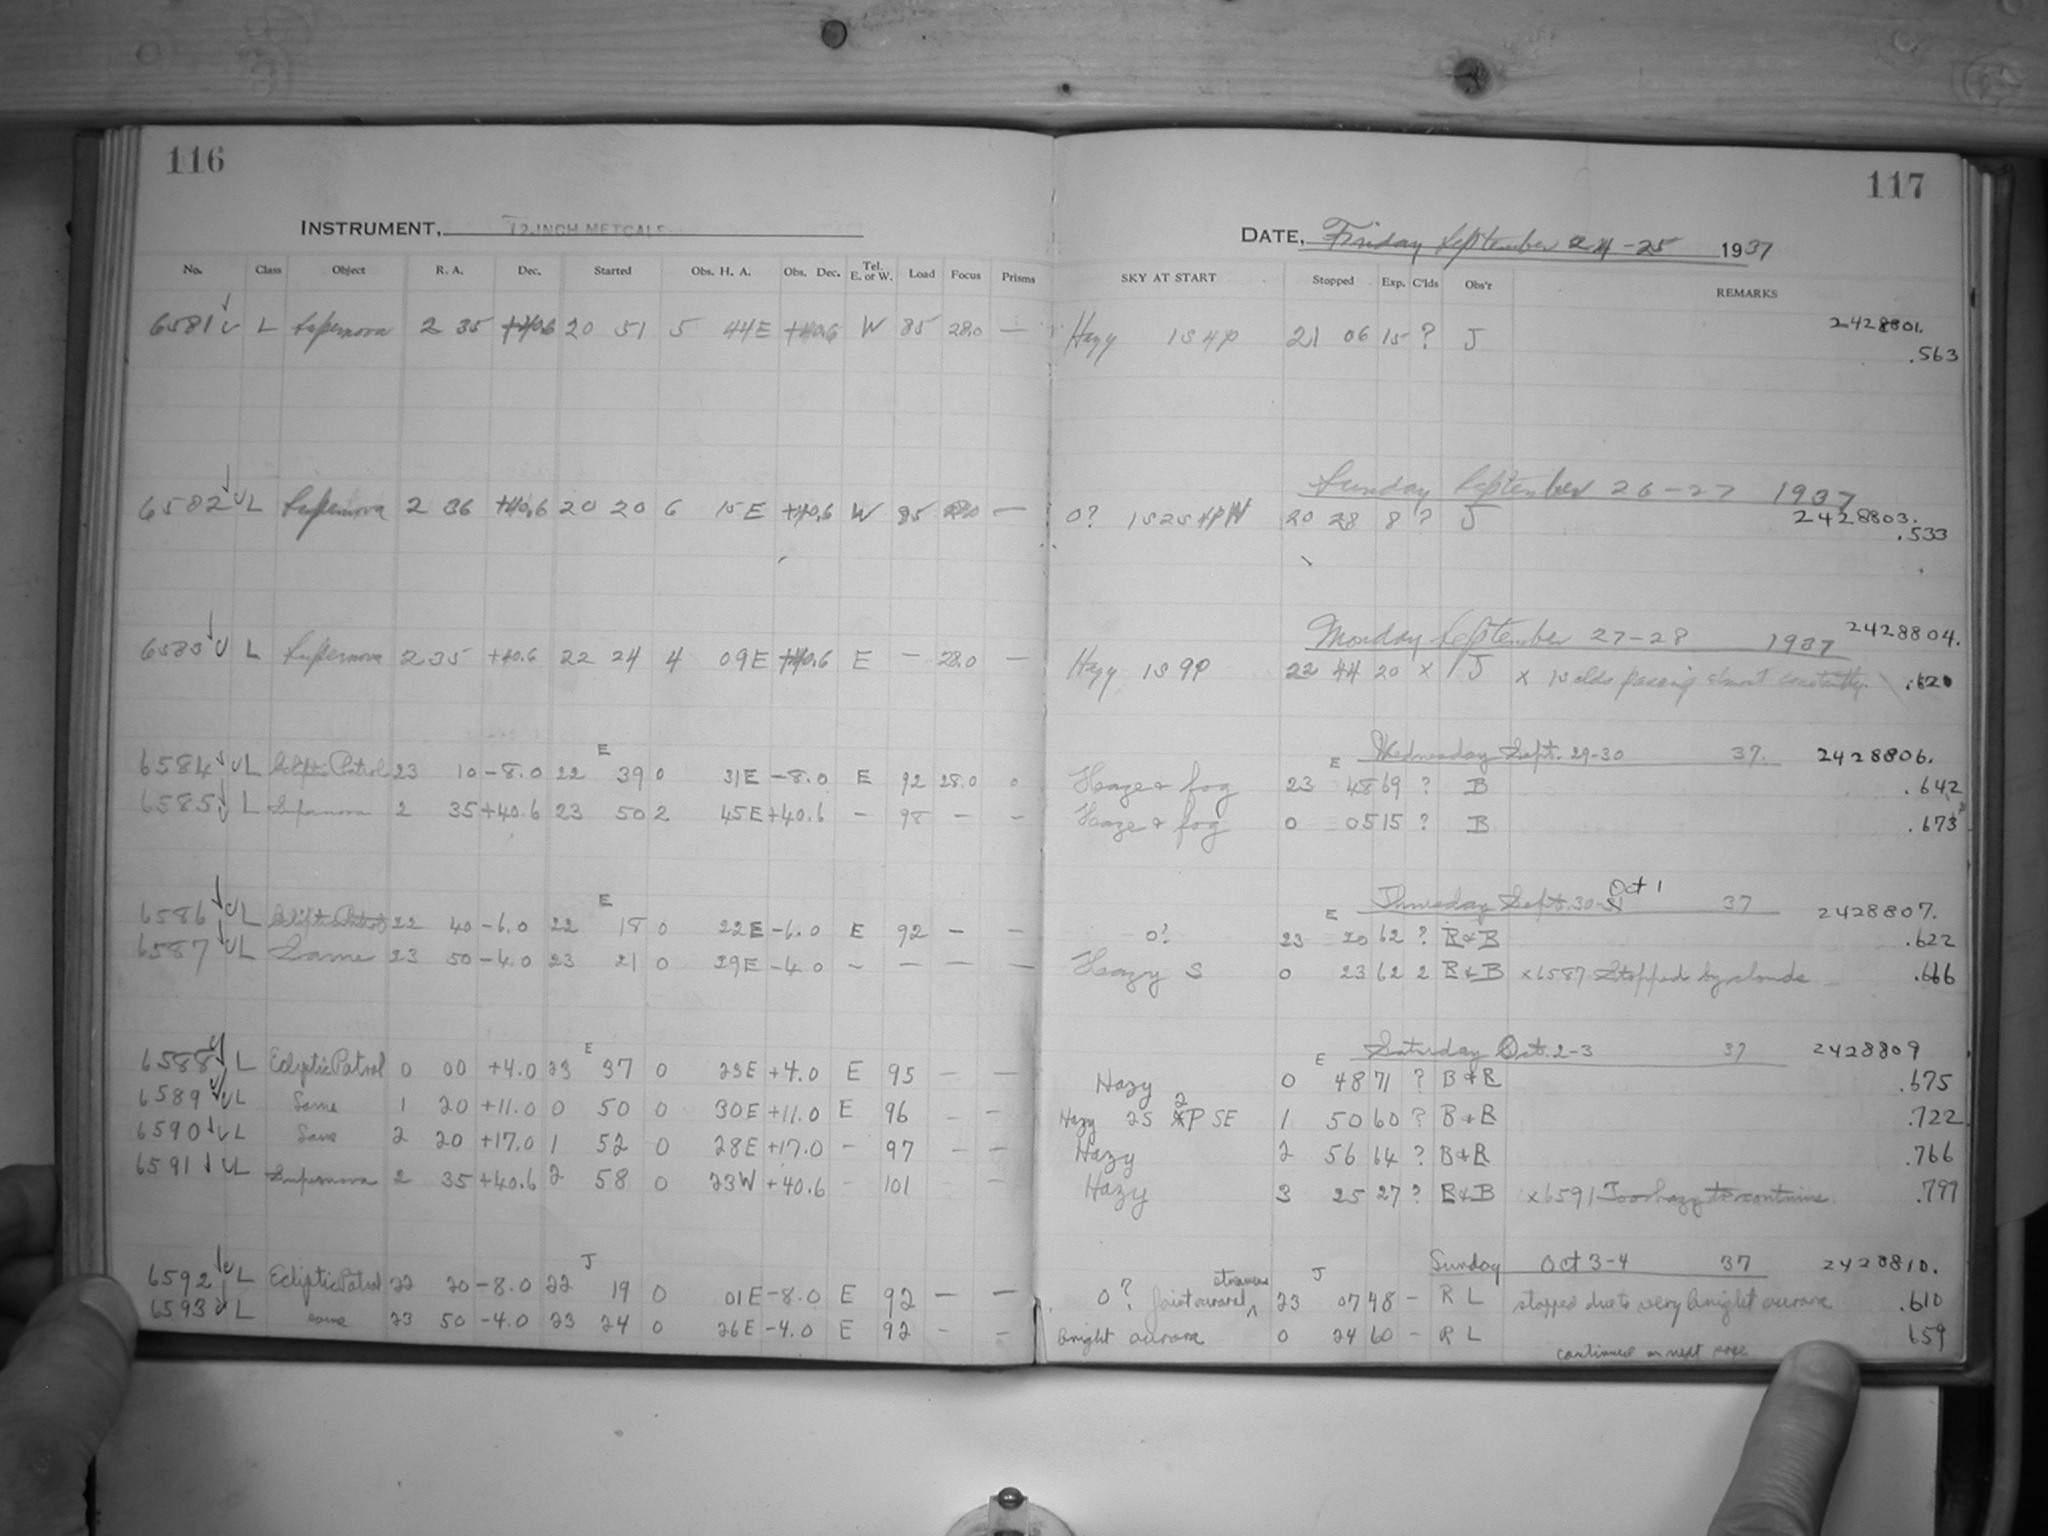 116
INSTRUMENT, 12-INCH METCALF
No. Class Object R. A. Dec. Started Obs. H. A. Obs. Dec. Tel. E. or W. Load Focus Prisms
6581 L Supernova 2 35 +40.6 20 51 5 44E +40.6 W 85 28.0 —
6582 L Supernova 2 36 +40.6 20 20 6 15E +40.6 W 85 —
6583 L Supernova 2 35 +40.6 22 24 4 09E +40.6 E — 28.0 —
E
6584 L Ecliptic Patrol 23 10 -8.0 22 39 0 31E -8.0 E 92 28.0 0
6585 L Supernova 2 35 +40.6 23 50 2 45E +40.6 - 98 — —
E
6586 L Ecliptic Patrol 22 40 -6.0 22 18 0 22E -6.0 E 92 — —
6587 L Same 23 50 -4.0 23 21 0 29E -4.0 — — — —
E
6588 L Ecliptic Patrol 0 00 +4.0 23 37 0 23E +4.0 E 95 — —
6589 L Same 1 20 +11.0 0 50 0 30E +11.0 E 96 — —
6590 L Same 2 20 +17.0 1 52 0 28E +17.0 - 97 — —
6591 L Supernova 2 35 +40.6 2 58 0 23W +40.6 - 101 — —
J
6592 L Ecliptic Patrol 22 20 -8.0 22 19 0 01E -8.0 E 92 — —
6593 L same 23 50 -4.0 23 24 0 26E -4.0 E 92 - —
117
DATE, Friday September 24-25 1937
SKY AT START Stopped Exp. C'lds Obs'r REMARKS
2428801.
Hazy 1S 4P 21 06 15 ? J .563
Sunday September 26-27 1937
0? 1S2S4P 20 28 8 ? J 2428803.
.533
Monday September 27-28 1937 2428804.
Hazy 1S 9P 22 44 20 x J x clds passing almost constantly. .620
E Wednesday Sept. 29-30 37. 2428806.
Haze & fog 23 48 69 ? B .642
Haze & fog 0 05 15 ? B .673
Oct 1
E Thursday Sept. 30-31 37 2428807.
0? 23 20 62 ? R&B .622
Hazy S 0 23 62 2 R&B x6587 Stopped by clouds .666
E Saturday Oct. 2-3 37 2428809
Hazy 0 48 71 ? B&R .675
2
Hazy 2S P SE 1 50 60 ? B&R .722
Hazy 2 56 64 ? B&R .766
Hazy 3 25 27 ? R&B x6591 Too hazy to continue .797
J Sunday Oct 3-4 37 2428810.
streamers
0? faint auroral ^ 23 07 48 - R L stopped due to very bright aurora .610
bright aurora 0 24 60 - R L 659
continued on next page